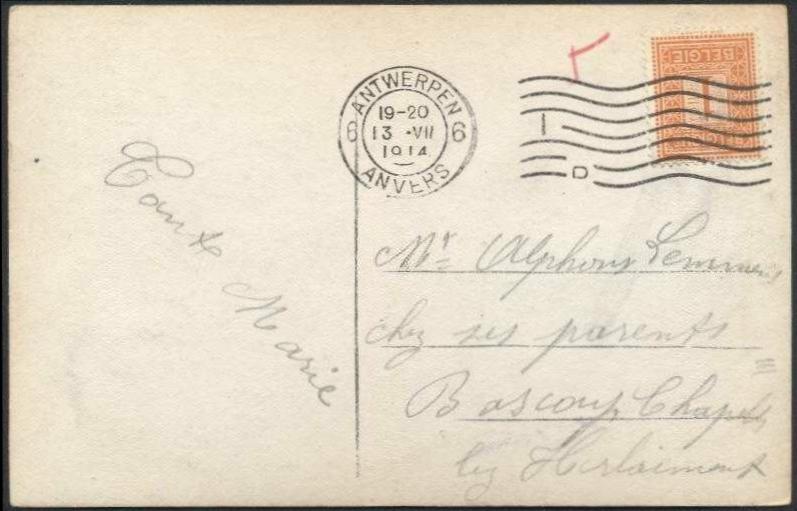 BELGIE
1
ANTWERPEN
6 19-20 6
13 •VII
1914
ANVERS
I
D
Tante Marie
Mr Alphons Lemmens
chez ses parents
Bascoup Chapelle
lez Herlaimont